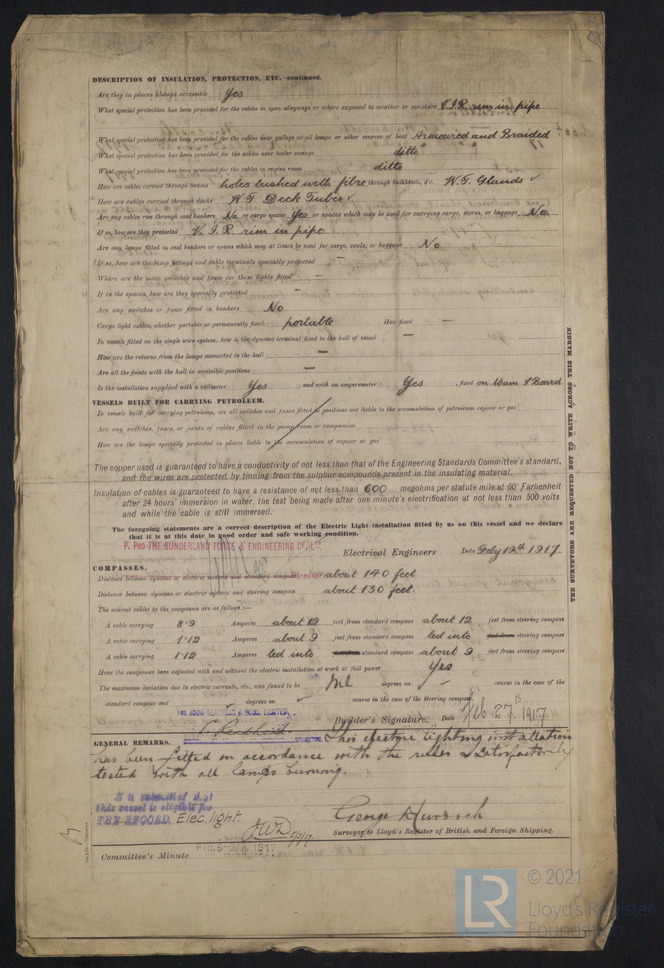 DESCRIPTION OF INSULATION, PROTECTION, ETC.—continued.
Are they in places always accessible Yes
What special protection has been provided for the cables in open alleyways or where exposed to weather or moisture V.I.R. run in pipe
What special protection has been provided for the cables near galleys or oil lamps or other sources of heat Armoured and Braided
What special protection has been provided for the cables near boiler casings ditto
What special protection has been provided for the cables in engine room ditto
How are cables carried through beams holes bushed with fibre through bulkheads, &c. W.T. Glands
How are cables carried through decks W.T. Deck Tubes
Are any cables run through coal bunkers No or cargo spaces Yes or spaces which may be used for carrying cargo, stores, or baggage No.
If so, how are they protected V.I.R. run in pipe
Are any lamps fitted in coal bunkers or spaces which may at times be used for cargo, coals, or baggage No
If so, how are the lamp fittings and cable terminals specially protected —
Where are the main switches and fuses for these lights fitted —
If in the spaces, how are they specially protected —
Are any switches or fuses fitted in bunkers No
Cargo light cables, whether portable or permanently fixed portable How fixed —
In vessels fitted on the single wire system, how is the dynamo terminal fixed to the hull of vessel —
How are the returns from the lamps connected to the hull —
Are all the joints with the hull in accessible positions —
Is the installation supplied with a voltmeter Yes, and with an amperemeter Yes, fixed on Main S Board
VESSELS BUILT FOR CARRYING PETROLEUM.
In vessels built for carrying petroleum, are all switches and fuses fitted in positions not liable to the accumulation of petroleum vapour or gas
Are any switches, fuses, or joints of cables fitted in the pump room or companion
How are the lamps specially protected in places liable to the accumulation of vapour or gas
The copper used is guaranteed to have a conductivity of not less than that of the Engineering Standards Committee's standard,
and the wires are protected by tinning from the sulphur compounds present in the insulating material.
Insulation of cables is guaranteed to have a resistance of not less than 600 megohms per statute mile at 60° Farhenheit
after 24 hours' immersion in water, the test being made after one minute's electrification at not less than 500 volts
and while the cable is still immersed.
The foregoing statements are a correct description of the Electric Light installation fitted by us on this vessel and we declare
that it is at this date in good order and safe working condition.
P. PRO THE SUNDERLAND FORGE & ENGINEERING Co. LTD Electrical Engineers Date Feby 12th 1917.
COMPASSES.
Distance between dynamo or electric motors and standard compass about 140 feet
Distance between dynamo or electric motors and steering compass about 130 feet.
The nearest cables to the compasses are as follows:—
A cable carrying 8.9 Amperes about 12 feet from standard compass about 12 feet from steering compass
A cable carrying 1.12 Amperes about 9 feet from standard compass led into steering compass
A cable carrying 1.12 Amperes led into standard compass about 9 feet from steering compass
Have the compasses been adjusted with and without the electric installation at work at full power Yes
The maximum deviation due to electric currents, etc., was found to be Nil degrees on — course in the case of the
standard compass and — degrees on — course in the case of the steering compass.
Builder's Signature. Date Feb 27th 1917
GENERAL REMARKS. This electric lighting installation
has been fitted in accordance with the rules & satisfactorily
tested with all lamps burning.
It is submitted that
this vessel is eligible for
THE RECORD. Elec. light.
JWD 5/3/17
George Murdoch
Surveyor to Lloyd's Register of British and Foreign Shipping.
Committee's Minute
THE SURVEYORS ARE REQUESTED NOT TO WRITE ACROSS THIS MARGIN
LR
© 2021
Lloyd's Register
Foundation